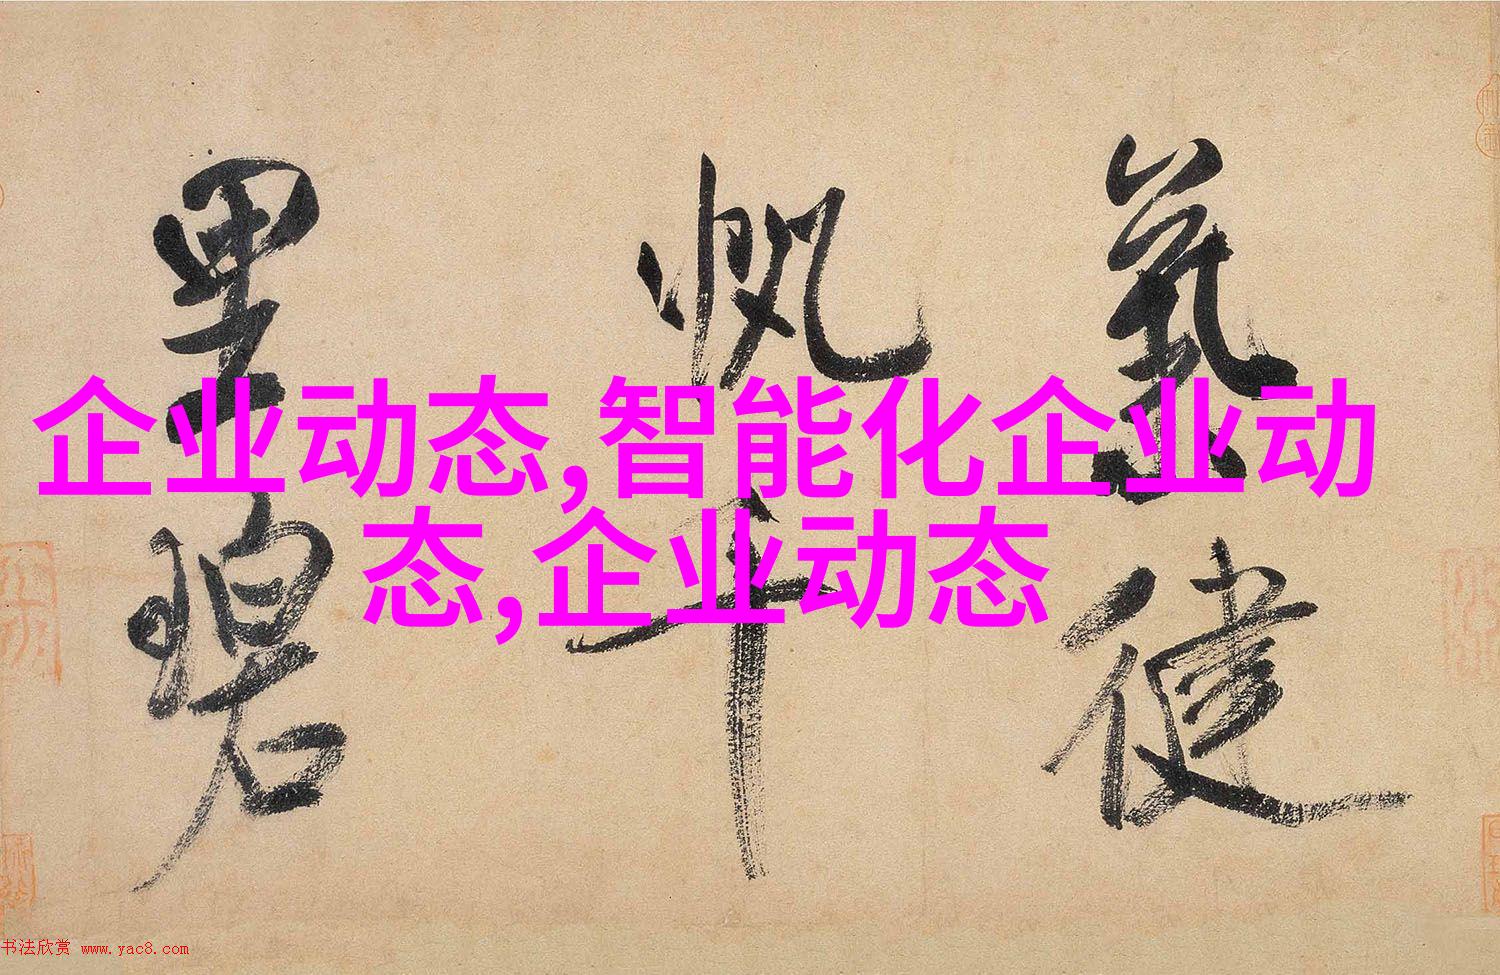 气健
帆千
里碧
企业动态,智能化企业动
态,企业动态
书法欣赏 www.yac8.com